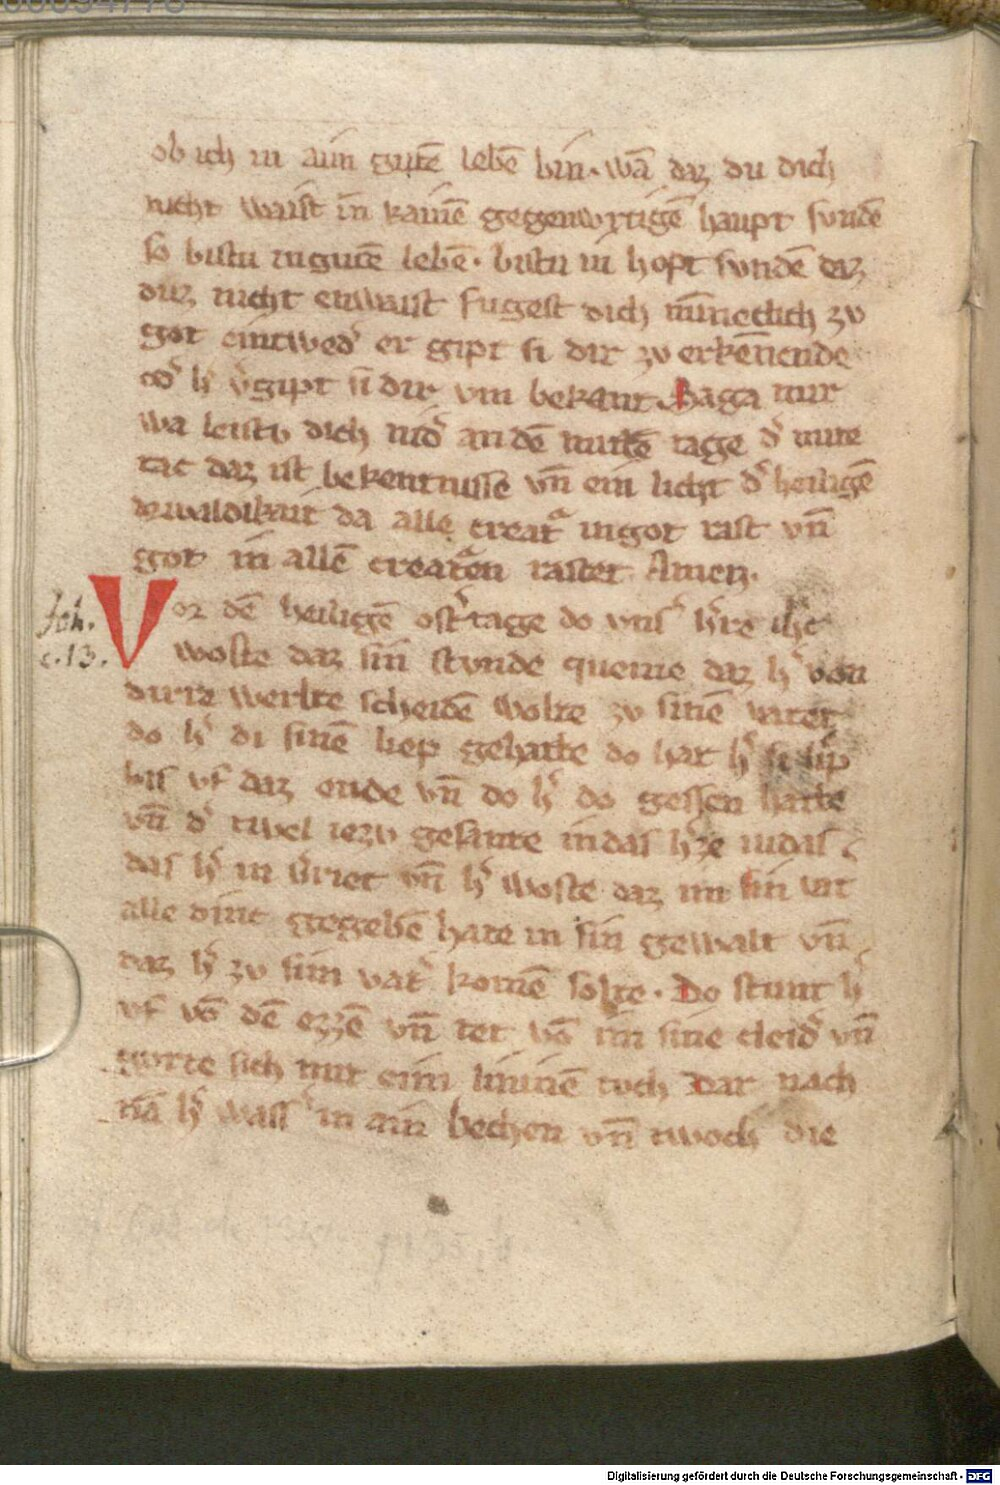 00094778
ob ich in ain gutē lebē bin · wā daz du dich
nicht waist in kainē gegenwrtigē haupt sundē
so bistu in gutē lebē · bistu in hopt sundē daz
duz nicht enwaist fugest dich minneclich zv
got eintwedˀ er gipt si dir zv erkēnende
odˀ hˀ vˀgipt si dir vm bekant · Saga mir
wa leistv dich nidˀ an dē mittē tage dˀ mite
tac daz ist bekentnisse vn̄ ein licht dˀ heiligē
drivaldikait da alle creatˀ in got rast vn̄
got in allē creatˀen rastet Amen ·
Joh.
c. 13.
Vor dē heiligē ostˀtagge do vnsˀ hˀre ihc
woste daz sin stvnde queme daz hˀ von
dirre werlte scheidē wolte zv sinē vater
do hˀ di sinē liep gehatte do hat hˀ si lip
bis vf daz ende vn̄ do hˀ do gessen hatte
vn̄ dˀ tivel iezv gesante in das hˀze iudas
das hˀ in vˀriet vn̄ hˀ woste daz im sin vat
alle dinc gegebē hate in sin gewalt vn̄
daz hˀ zv sim vatˀ komē solte · Do stunt hˀ
vf vō dē ezzē vn̄ tet vō im sine cleidˀ vn̄
gvrte sich mit eim lininē toch Dar nach
nā hˀ wassˀ in ain bechen vn̄ twoch die
Digitalisierung gefördert durch die Deutsche Forschungsgemeinschaft - DFG